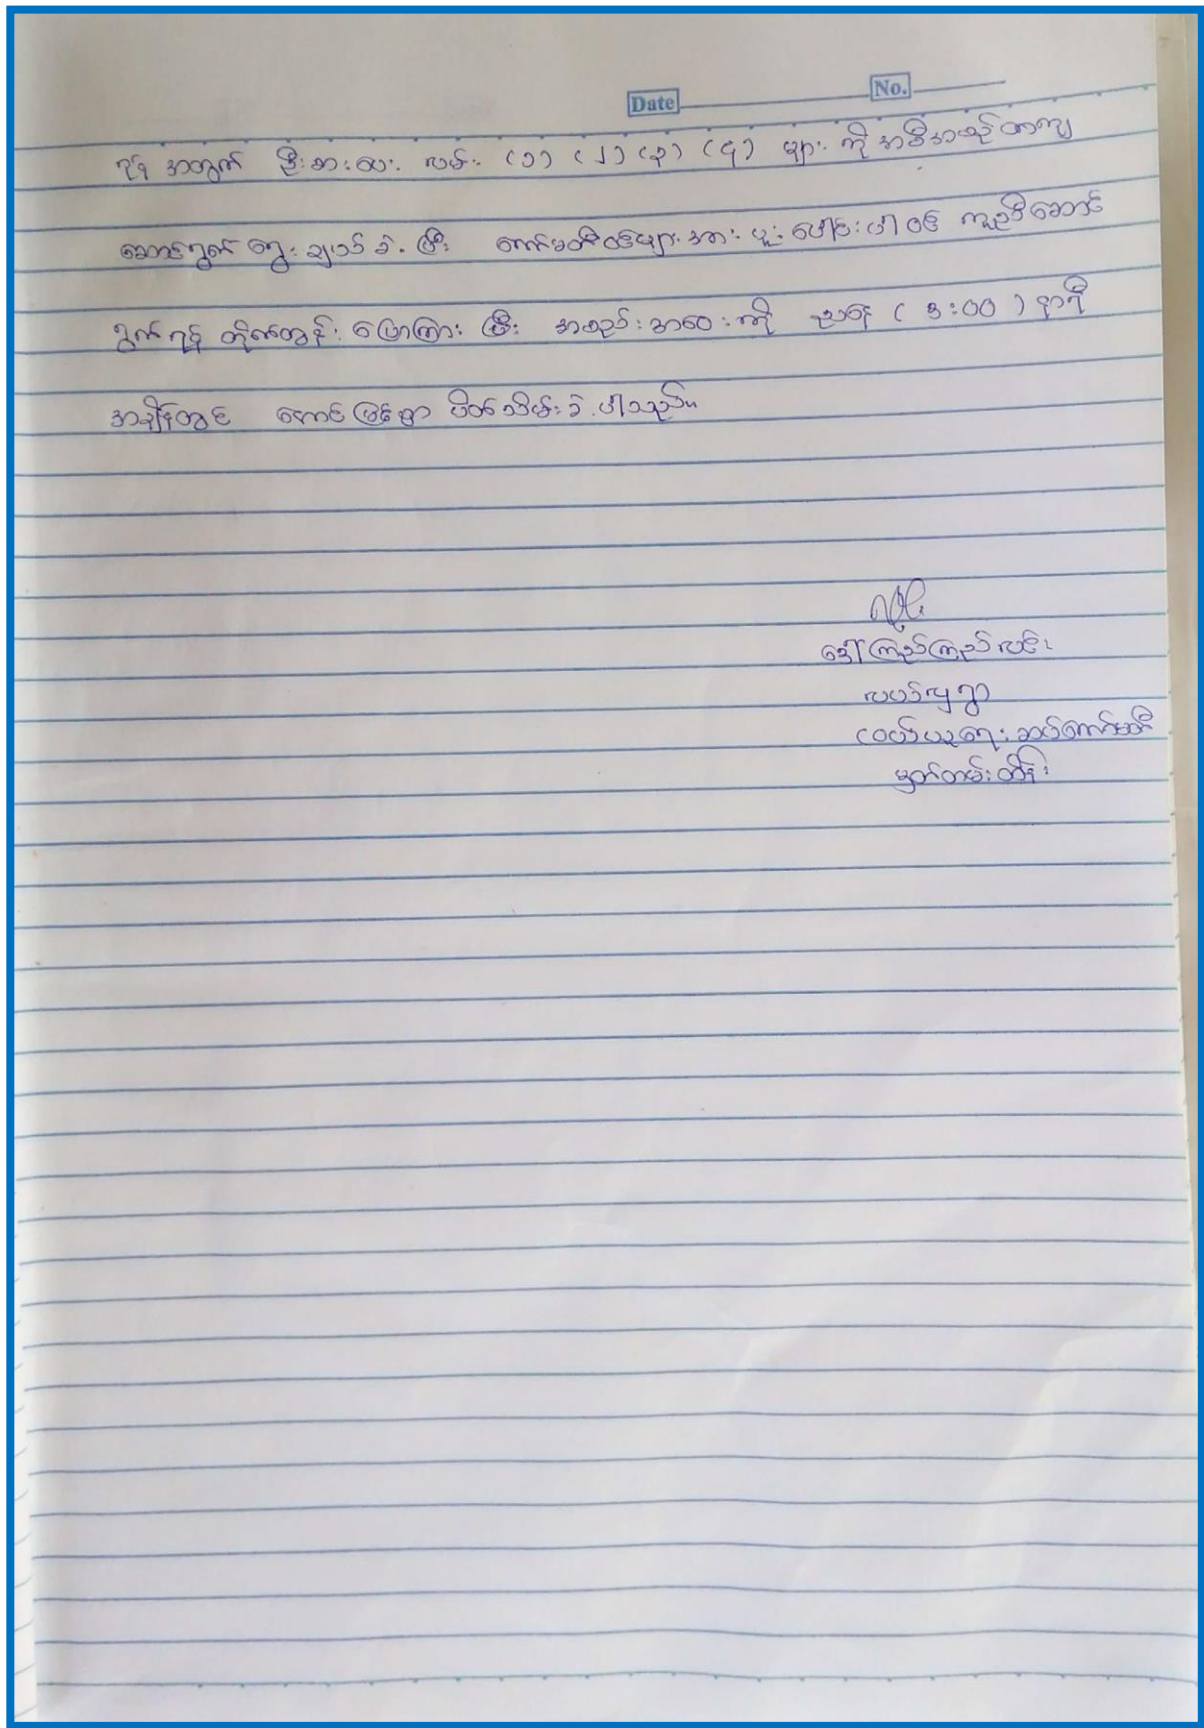 Date No.
ရန် အတွက် ဦးစားပေး လမ်း (၁) (၂) (၃) (၄) များ ကို အစီအစဉ် တကျ
ဆောင်ရွက် ရွေးချယ်ခဲ့ပြီး ကော်မတီဝင်များအား ပူးပေါင်းပါဝင် ကူညီဆောင်
ရွက်ရန် တိုက်တွန်း ပြောကြားပြီး အစည်းအဝေးကို ညနေ ( ၃:၀၀ ) နာရီ
အချိန်တွင် အောင်မြင်စွာ ပိတ်သိမ်းခဲ့ပါသည်။
ဒေါ်ကြည်ကြည်လင်း
လယ်လှရွာ
ဝယ်ယူရေး ဆပ်ကော်မတီ
မှတ်တမ်းတိန်း